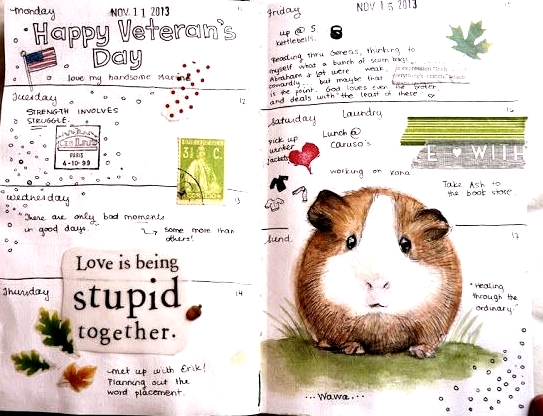 Monday
NOV 11 2013
11
Happy Veteran's
Day
love my handsome Marine
Tuesday
12
STRENGTH INVOLVES
STRUGGLE.
PARIS
4-10-99
3½ C.
CORREIO
Wednesday
13
"There are only bad moments
in good days."
some more than
others!
Thursday
14
Love is being
stupid
together.
met up with Erik!
Planning out the
word placement.
Friday
NOV 15 2013
up @ 5.
kettlebells.
Reading thru Genesis, thinking to
myself what a bunch of
Abraham & Lot were. weak,
cowardly... but maybe that
is the point. God loves even the
and deals with "the least of these"
Saturday
Laundry
16
pick up
winter
jackets
Lunch @
Caruso's
E ♥ WITH
working on Kona
Take Ash to
the book store
Sund
17
"Healing
through the
ordinary"
...Wawa...